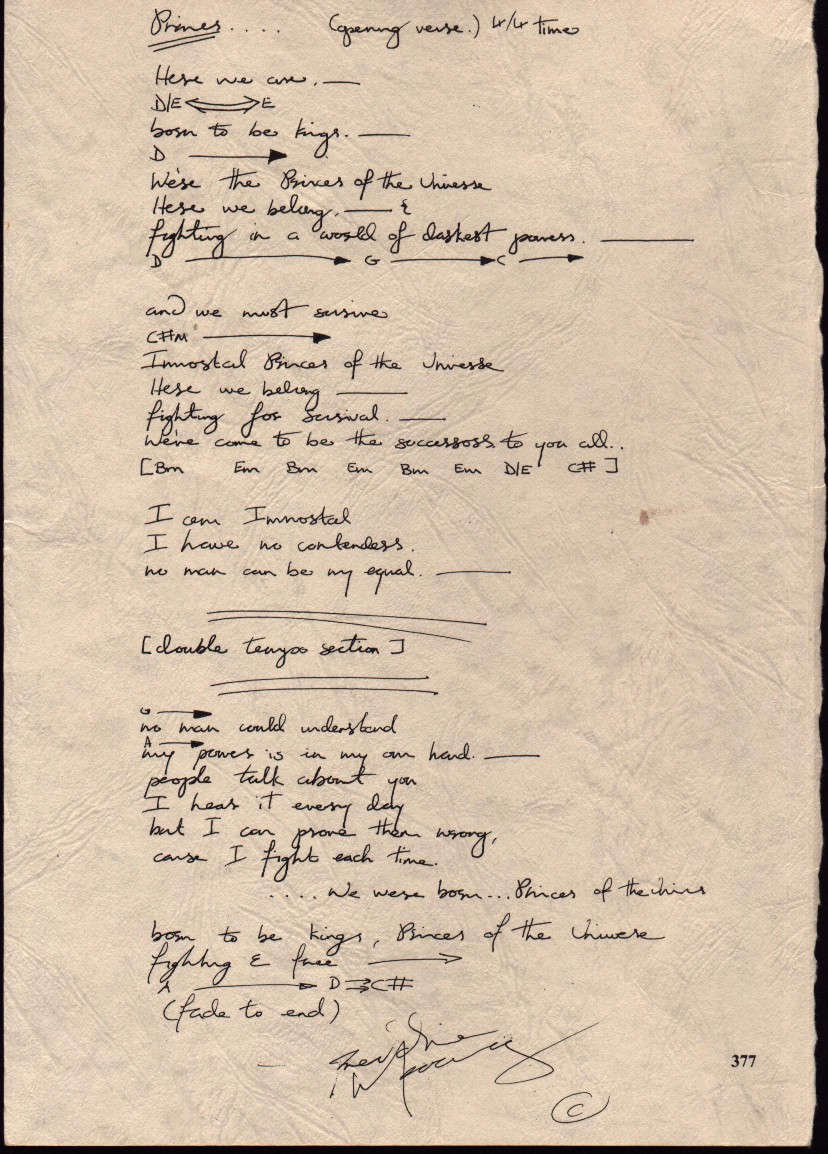 Princes.... (opening verse.) 4/4 time
Here we are. —
D/E ⟺ E
born to be kings. —
D →
We're the Princes of the Universe
Here we belong, — &
fighting in a world of darkest powers. —
D → G → C →
and we must survive
C#m →
Immortal Princes of the Universe
Here we belong —
fighting for survival. —
we've come to be the successors to you all..
[Bm Em Bm Em Bm Em D/E C# ]
I am Immortal
I have no contenders.
no man can be my equal. —
[double tempo section ]
G →
no man could understand
A →
my power is in my own hand. —
people talk about you
I hear it every day
but I can prove them wrong,
cause I fight each time.
.... We were born... Princes of the Univs
born to be kings, Princes of the Universe
fighting & free →
A → D ⇒ C#
(fade to end)
©
377